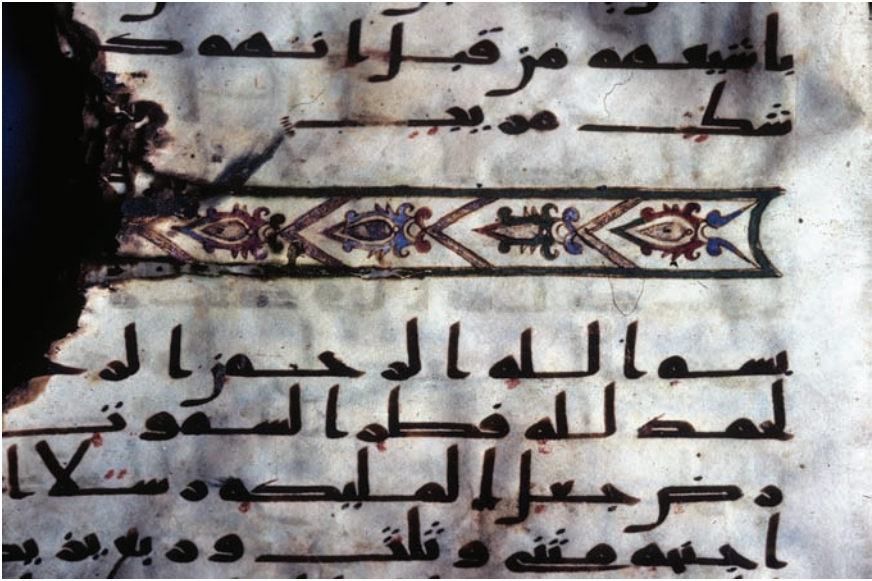 باشيعهم من قبل انهم ك
شك مريب
بسم الله الرحمن الر
الحمد لله فطر السموت
رض جعل المليكه رسلا ا
اجنحه مثنى وثلث وربع يزيد